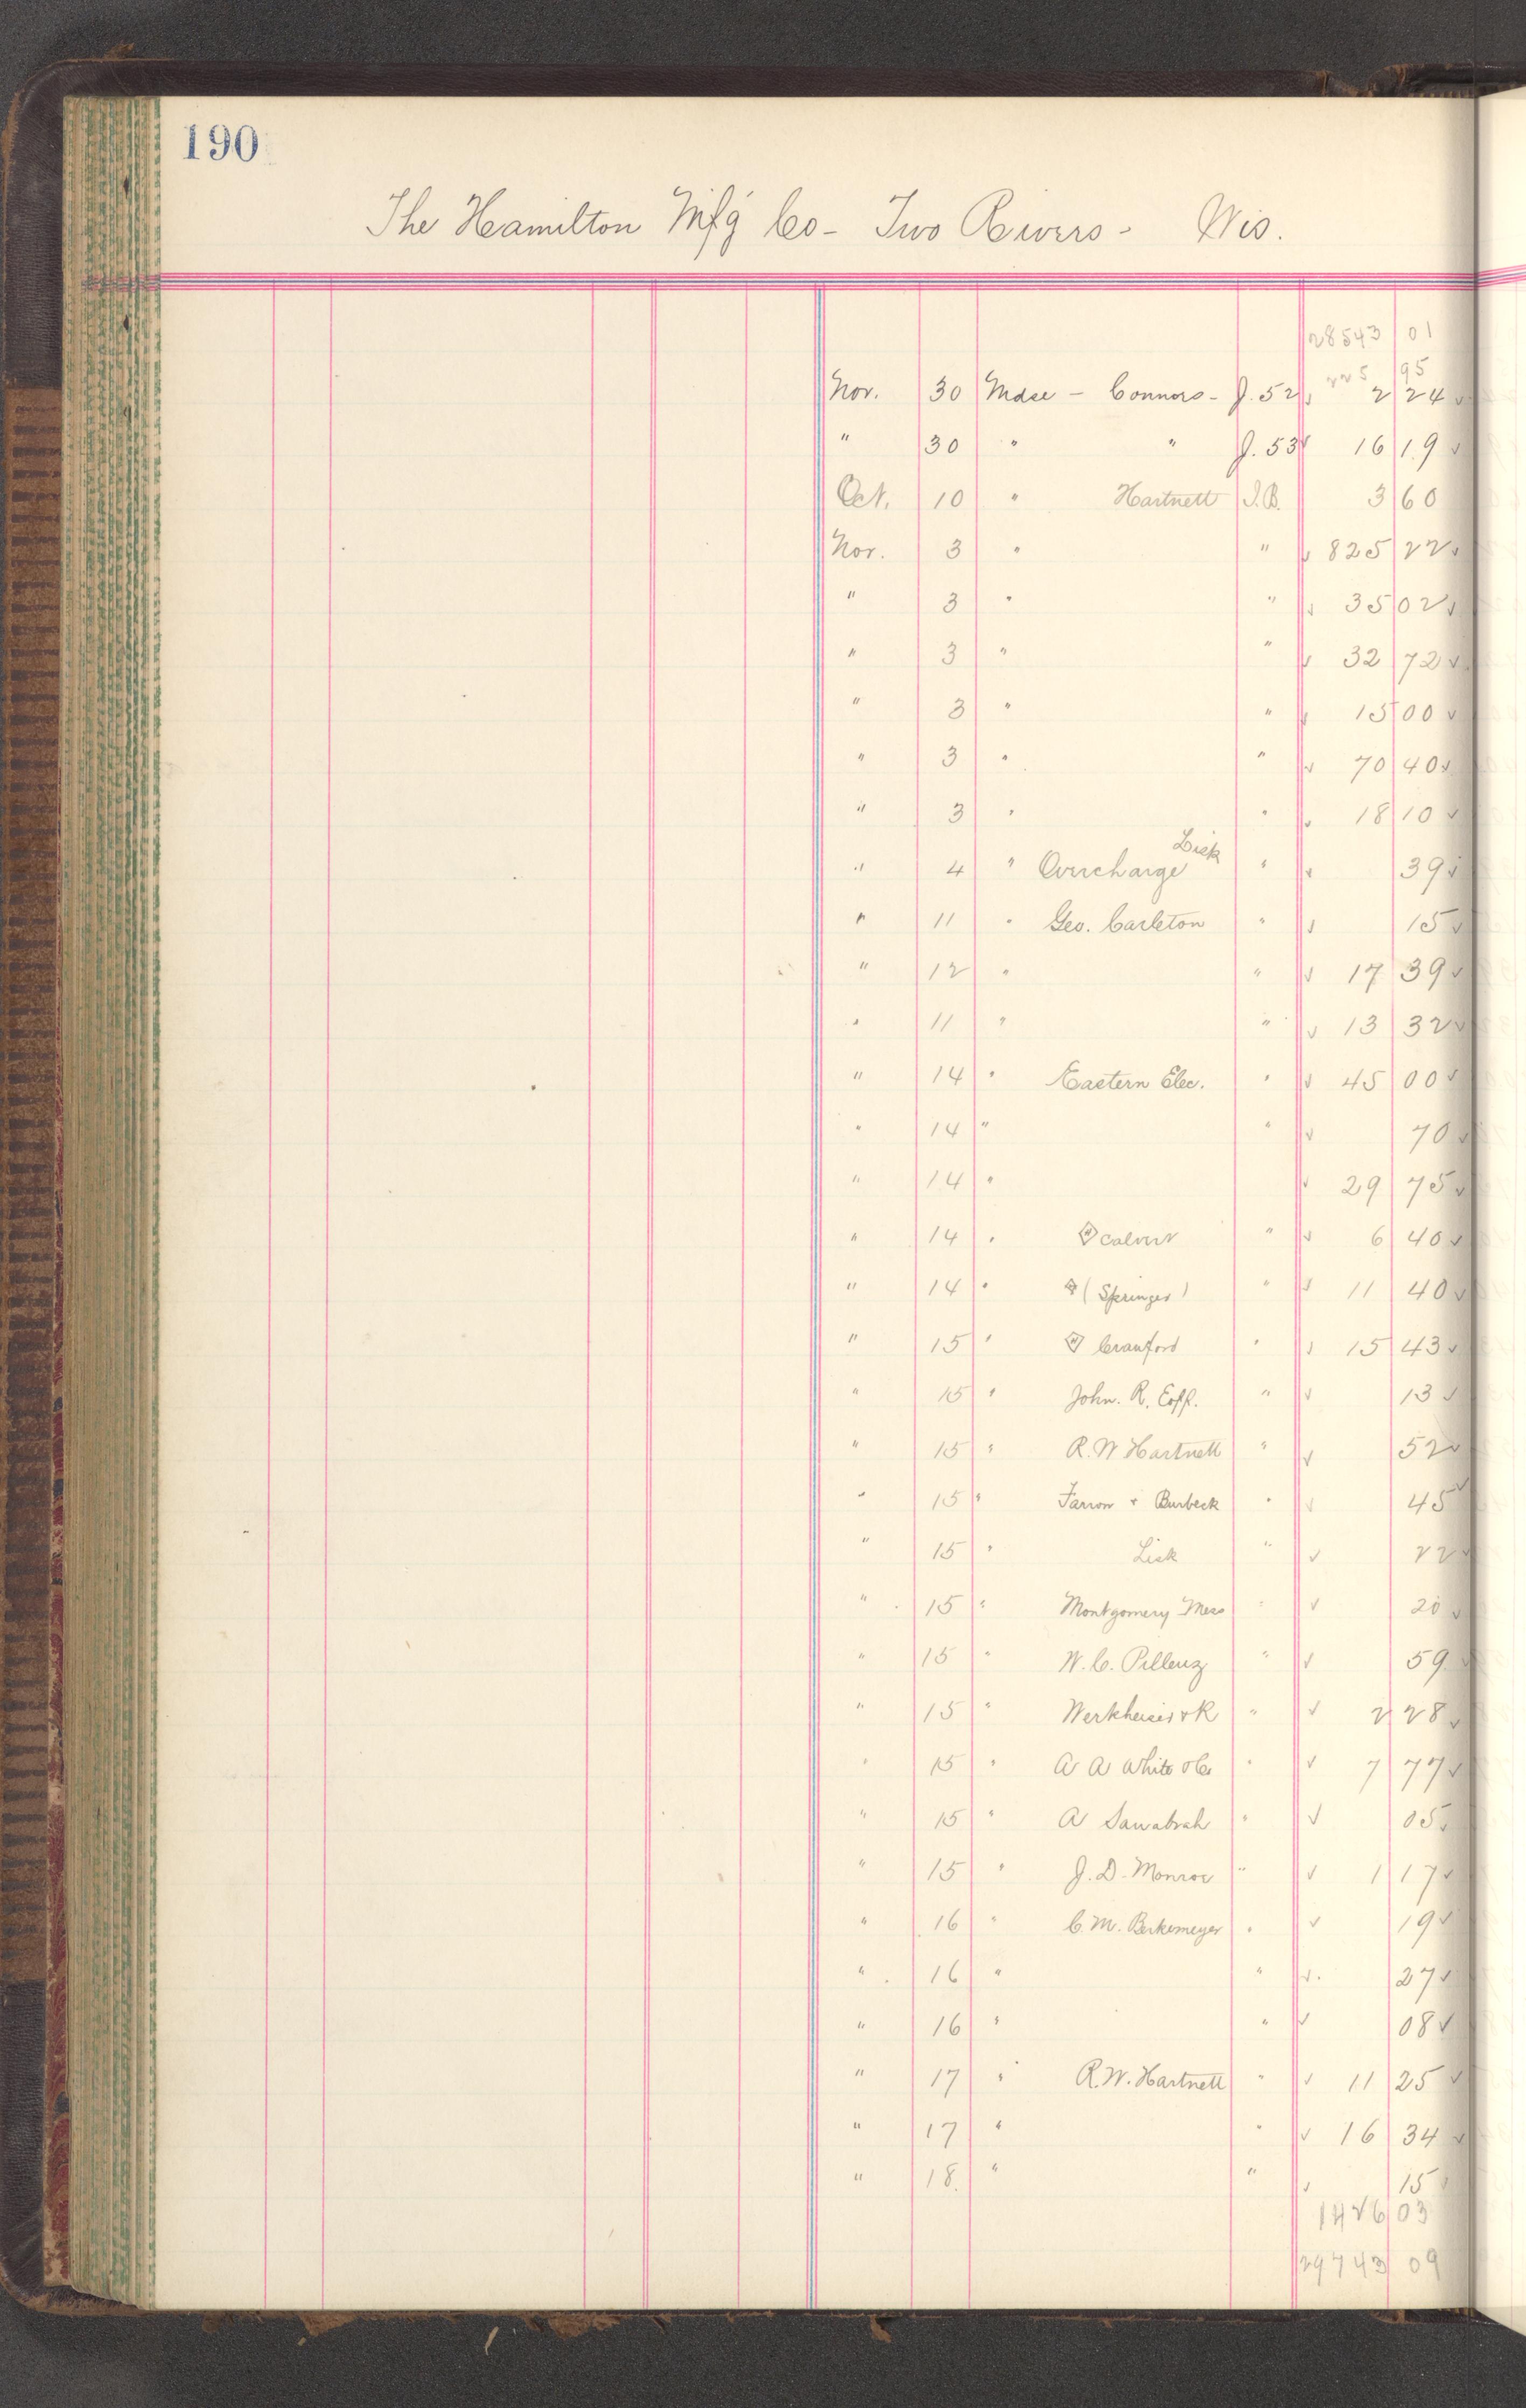 190
The Hamilton Mf'g Co - Two Rivers - Wis.
28543 01
225 95
Nov. 30 Mdse - Connors - J. 52 ✓ 2 24 ✓
" 30 " " J. 53 ✓ 16 19 ✓
Oct. 10 " Hartnett I.B. 3 60
Nov. 3 " " ✓ 825 22 ✓
" 3 " " ✓ 35 02 ✓
" 3 " " ✓ 32 72 ✓
" 3 " " ✓ 15 00 ✓
" 3 " " ✓ 70 40 ✓
" 3 " " ✓ 18 10 ✓
" 4 " Overcharge Lisk " ✓ 39 ✓
" 11 " Geo. Carleton " ✓ 15 ✓
" 12 " " ✓ 17 39 ✓
" 11 " " ✓ 13 32 ✓
" 14 " Eastern Elec. " ✓ 45 00 ✓
" 14 " " ✓ 70 ✓
" 14 " ✓ 29 75 ✓
" 14 " Calvert " ✓ 6 40 ✓
" 14 " (Springer) " ✓ 11 40 ✓
" 15 " Cranford " ✓ 15 43 ✓
" 15 " John. R. Eoff. " ✓ 13 ✓
" 15 " R. W Hartnett " ✓ 52 ✓
" 15 " Farrow + Burbeck " ✓ 45 ✓
" 15 " Lisk " ✓ 22 ✓
" 15 " Montgomery " ✓ 20 ✓
" 15 " W. C. " ✓ 59 ✓
" 15 " & K " ✓ 2 28 ✓
" 15 " A A White & Co " ✓ 7 77 ✓
" 15 " A " ✓ 05 ✓
" 15 " J. D. Monroe " ✓ 1 17 ✓
" 16 " C. M. Berkemeyer " ✓ 19 ✓
" 16 " " ✓ 27 ✓
" 16 " " ✓ 08 ✓
" 17 " R. W. Hartnett " ✓ 11 25 ✓
" 17 " " ✓ 16 34 ✓
" 18. " " ✓ 15 ✓
03
29743 09